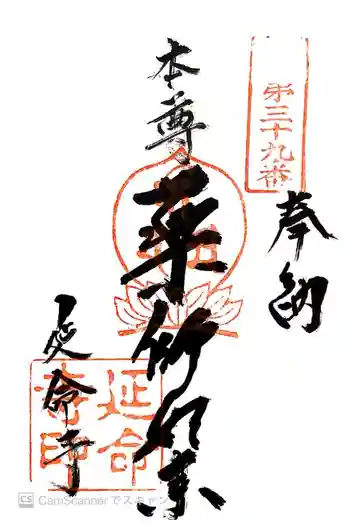 第三十九番
奉納
本尊
薬師如来
延命寺
延命
寺印
CS CamScannerでスキャン